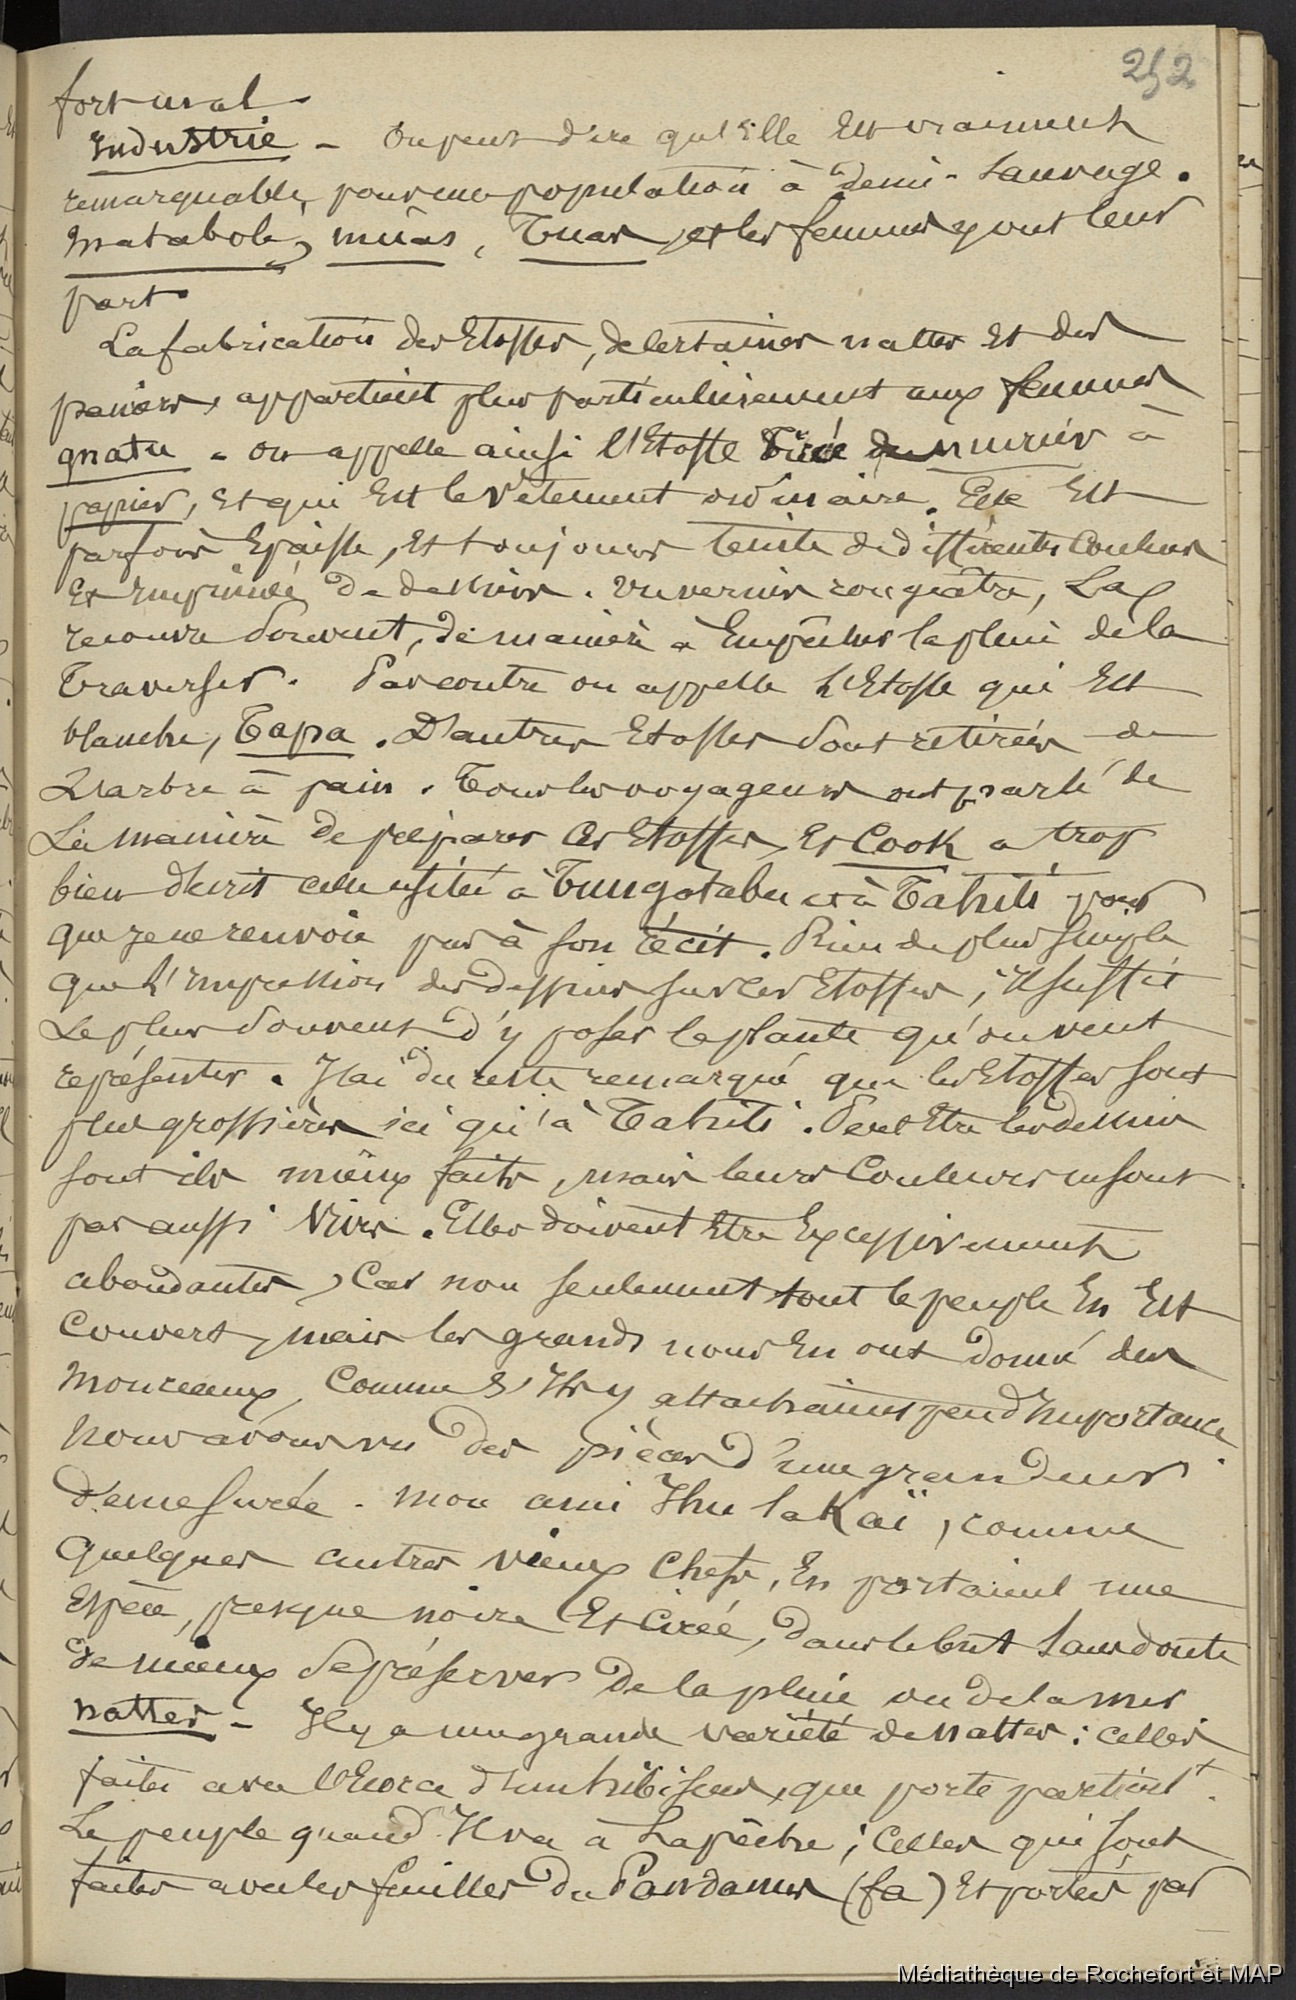 252
fort usal.
Industrie - On peut dire qu'Elle Est vraiment
remarquable, pour une population à demi-sauvage.
Matabole, mûas, Tuas, et les femmes y ont leur
part.
La fabrication des Etoffes, de certaines nattes Et des
paniers, appartient plus particulièrement aux femmes
gnatu - on appelle ainsi l'Etoffe tirée du murier à
papier, Et qui Est le vêtement ordinaire. Elle Est
parfois Epaisse, Et toujours teinte de différentes Couleurs
Et Imprimée de dessins. Un vernis rougeâtre, La
recouvre souvent, de manière à Empêcher la pluie de la
Traverser. Par contre on appelle l'Etoffe qui Est
blanche, Tapa. D'autres Etoffes sont retirées de
L'arbre à pain. Tous les voyageurs ont parlé de
La manière de préparer Ces Etoffes, Et Cook a trop
bien décrit celle usitée à Tungatabu et à Tahiti pour
que Je ne renvoie pas à son récit. Rien de plus simple
que L'Impression des dessins sur les Etoffes, Il suffit
Le plus souvent d'y poser la plante qu'on veut
représenter. J'ai du reste remarqué que les Etoffes sont
plus grossières ici qu'à Tahiti. Peut Etre les dessins
sont ils mieux faits, mais leurs Couleurs ne sont
pas aussi Vives. Elles doivent Etre Excessivement
abondantes, Car non seulement tout le peuple En Est
Couvert, mais les grands nous En ont donné des
Monceaux, Comme S'Ils y attachaient peu d'Importance.
Nous avons vu des pièces d'une grandeur
démesurée. Mon ami Ihu laKaï, comme
Quelques autres vieux Chefs, En portaient une
Espèce, presque noire Et Cirée, dans le but sans doute
de mieux se préserver de la pluie ou de la mer
Nattes - Il y a une grande variété de Nattes : celles
faites avec l'Ecorce d'un hibiscus, que porte partient
Le peuple quand Il va à La pêche ; Celles qui sont
faites avec les feuilles du Pandanus (fa) Et portées par
Médiathèque de Rochefort et MAP